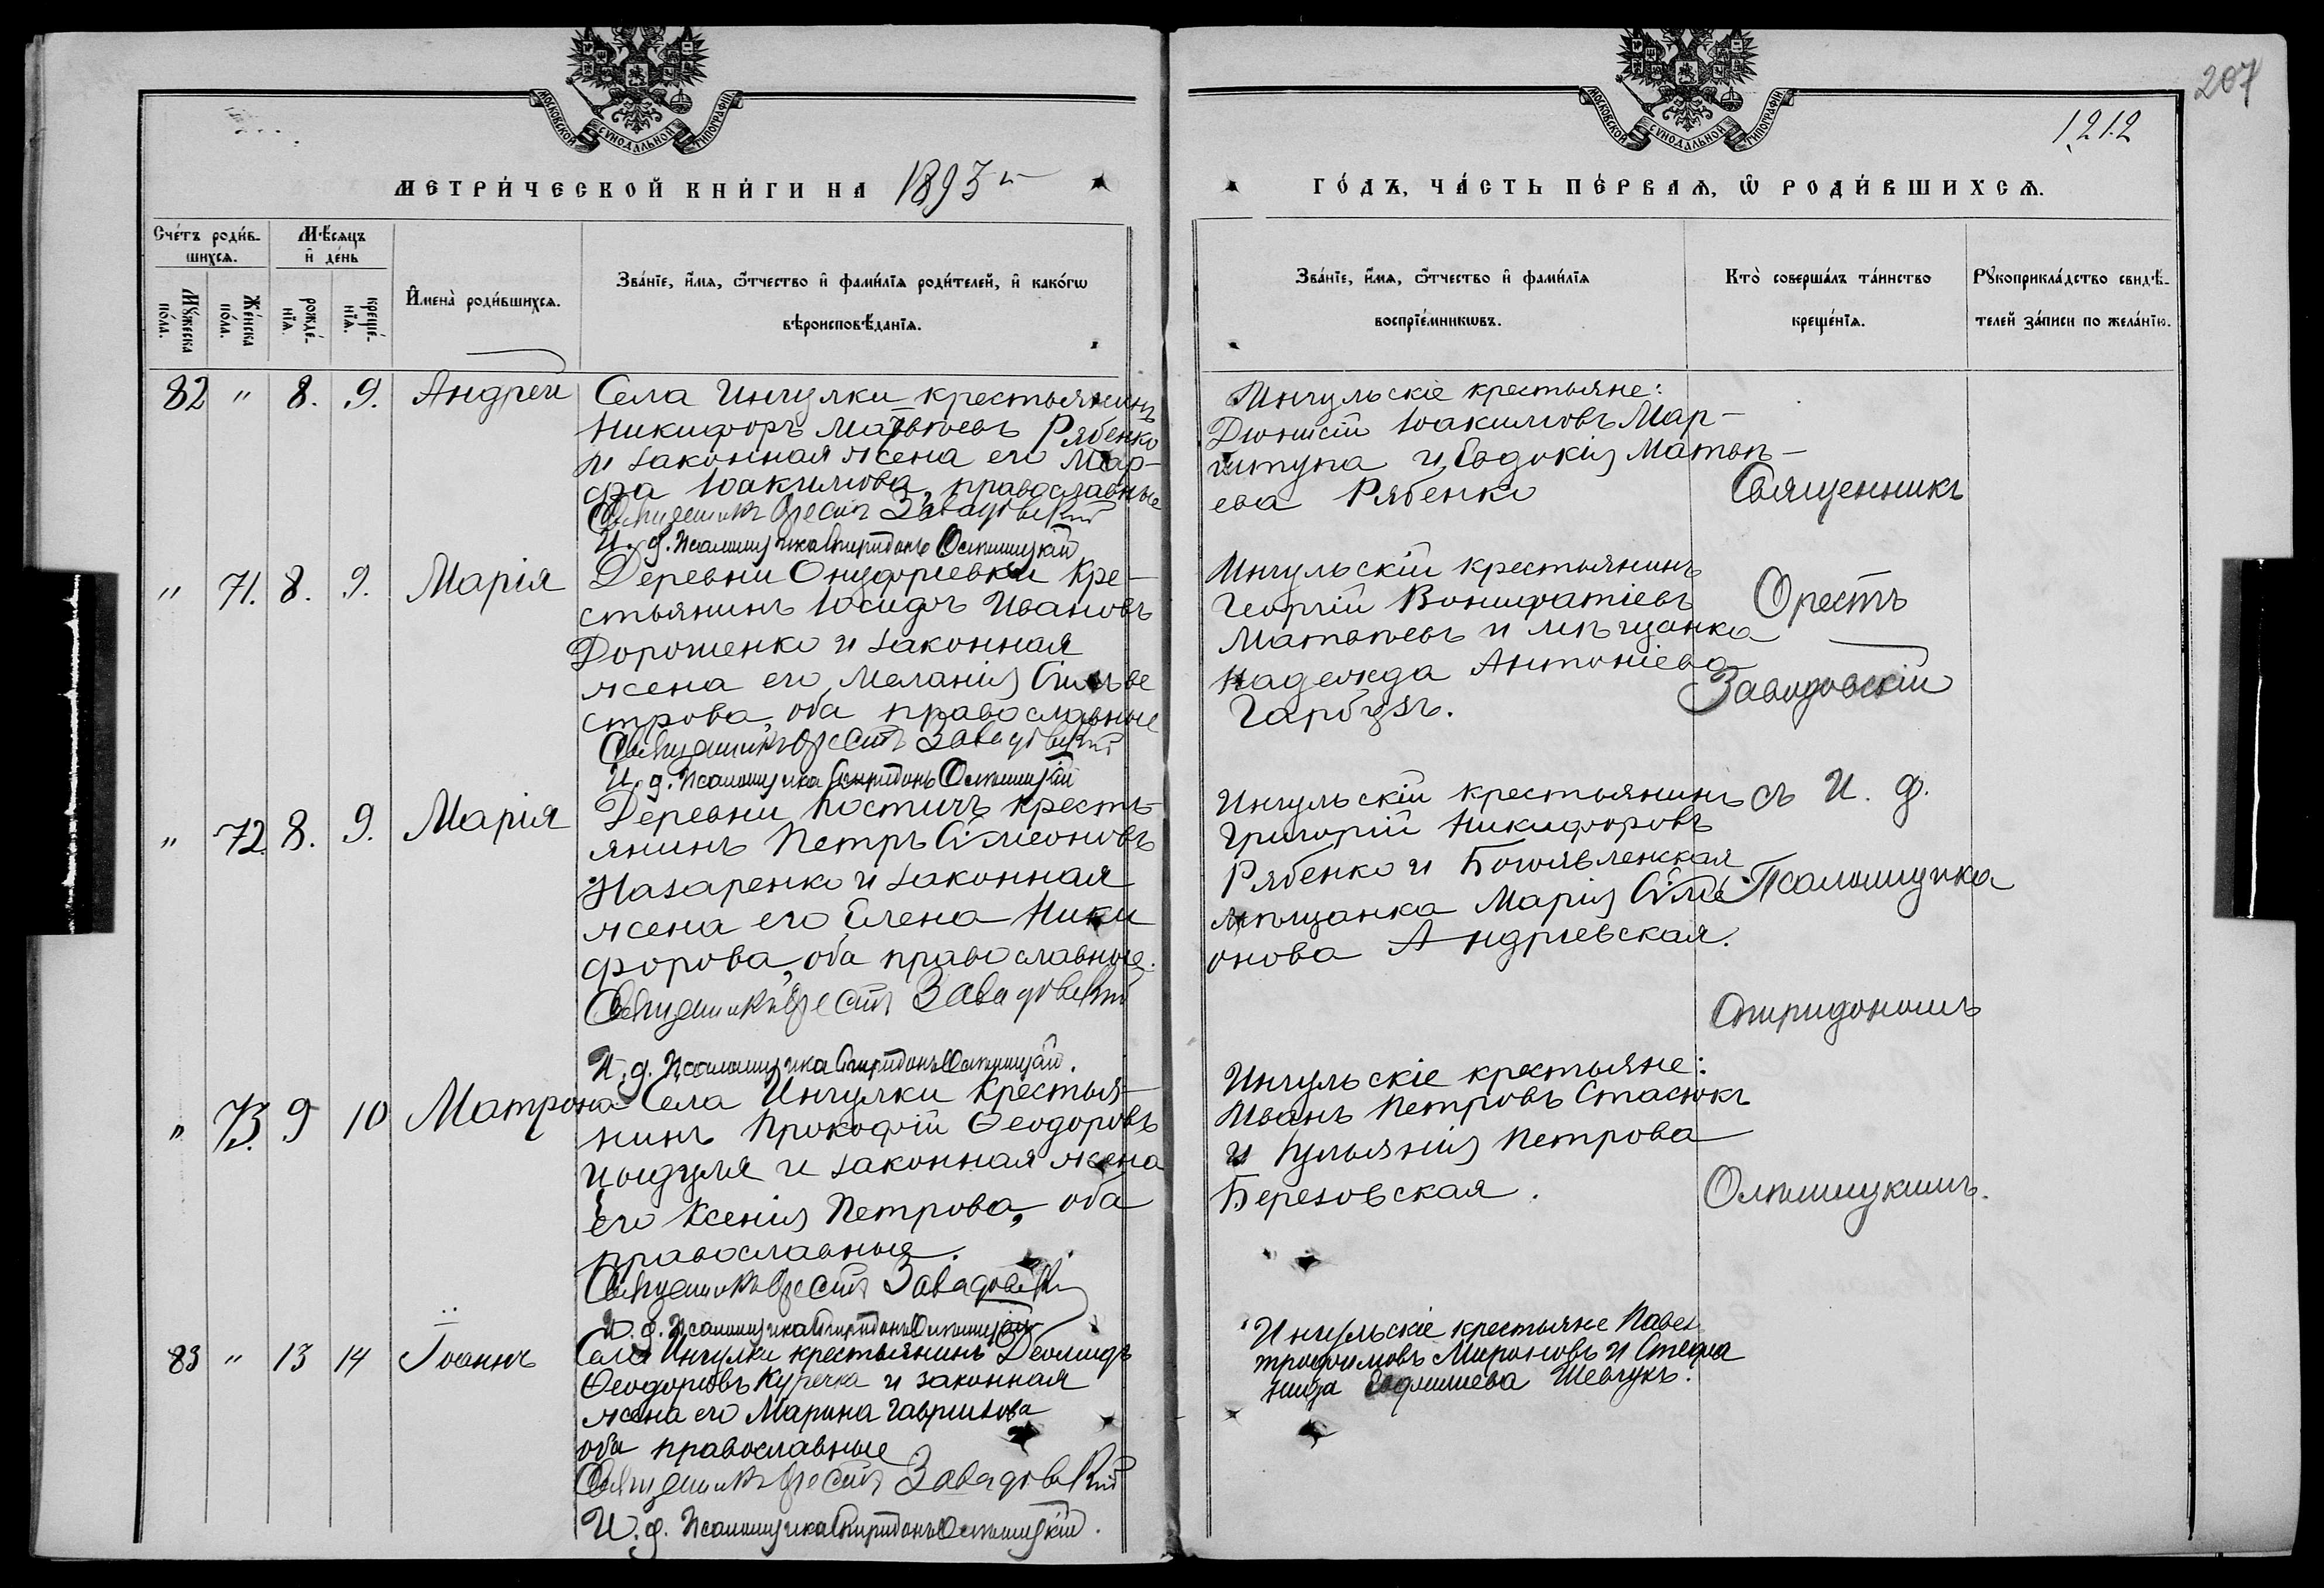 207
1212
МОСКОВСКОЙ СѴНОДАЛЬНОЙ ТИПОГРАФІИ
МОСКОВСКОЙ СѴНОДАЛЬНОЙ ТИПОГРАФІИ
МЕТРИ́ЧЕСКОЙ КНИ́ГИ НА 1893
ГО́ДЪ, ЧА́СТЬ ПЕ́РВАѦ, Ѡ҆ РОДИ́ВШИХСѦ.
Сче́тъ роди́в-
шихсѧ.
Мѣ́сѧцъ
и҆ де́нь
Мꙋ́жеска по́ла.
Же́нска по́ла.
рожде́-нїѧ.
креще́-нїѧ.
И҆мена̀ роди́вшихсѧ.
Зва́нїе, и҆́мѧ, ѻ҆́тчество и҆ фами́лїѧ роди́телей, и҆ како́гѡ
вѣроисповѣ́данїѧ.
Зва́нїе, и҆́мѧ, ѻ҆́тчество и҆ фами́лїѧ
воспрїе́мникѡвъ.
Кто̀ соверша́лъ та́инство
креще́нїѧ.
Рꙋкоприкла́дство свидѣ́-
телей за́писи по жела́нїю.
82 " 8. 9. Андрей
Села Ингулки крестьянинъ
Никифоръ Матвѣевъ Рябенко
и законная жена его Мар-
фа Іоакимова, православные
Священникъ Орестъ Завадовскій
И. д. Псаломщика Спиридонъ Олтишицкій
Ингульскіе крестьяне:
Діонисій Іоакимовъ Мар-
и Евдокія Матвѣ-
ева Рябенко
Священникъ
" 71. 8. 9. Марія
Деревни Онуфріевки кре-
стьянинъ Іосифъ Ивановъ
Дорошенко и законная
жена его Меланія Сильве
строва, оба православные
Священникъ Орестъ Завадовскій
И. д. Псаломщика Спиридонъ Олтишицкій
Ингульскій крестьянинъ
Георгій Вонифатіевъ
Матвѣевъ и мѣщанка
Надежда Антоніева
Гарбузъ.
Орестъ
Заводовскій
" 72. 8. 9. Марія
Деревни Костичъ кресть-
янинъ Петръ Сѵмеоновъ
Назаренко и законная
жена его Елена Ники
форова, оба православные.
Священникъ Орестъ Завадовскій
И. д. Псаломщика Спиридонъ Олтишицкій.
Ингульскій крестьянинъ
Григорій Никифоровъ
Рябенко и Богоявленская
мѣщанка Марія Сѵме
онова Андріевская.
съ И. д.
Псаломщика
Спиридономъ
" 73. 9 10 Матрона
Села Ингулки крестья-
нинъ Прокофій Ѳеодоровъ
Цыгуля и законная жена
его Ксенія Петрова, оба
православные.
Священникъ Орестъ Завадовскій
И. д. Псаломщика Спиридонъ Олтишицкій
Ингульскіе крестьяне:
Иванъ Петровъ Стасюкъ
и Іуліянія Петрова
Березовская.
Олтишицкимъ.
83 " 13 14 Іоаннъ
Села Ингулки крестьянинъ Деомидъ
Ѳеодоровъ Куречка и законная
жена его Марина Гавриилова
оба православные
Священникъ Орестъ Завадовскій
И. д. Псаломщика Спиридонъ Олтишицкій.
Ингульскіе крестьяне Павел
Трофимовъ Мироновъ и Стефа
нида Евфимиева Шевчукъ.